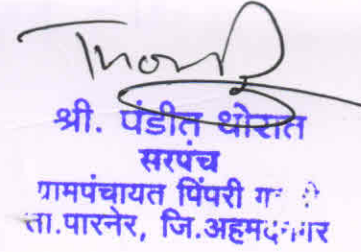 श्री. पंडीत थोरात
सरपंच
ग्रामपंचायत पिंपरी
ता.पारनेर, जि.अहमदनगर